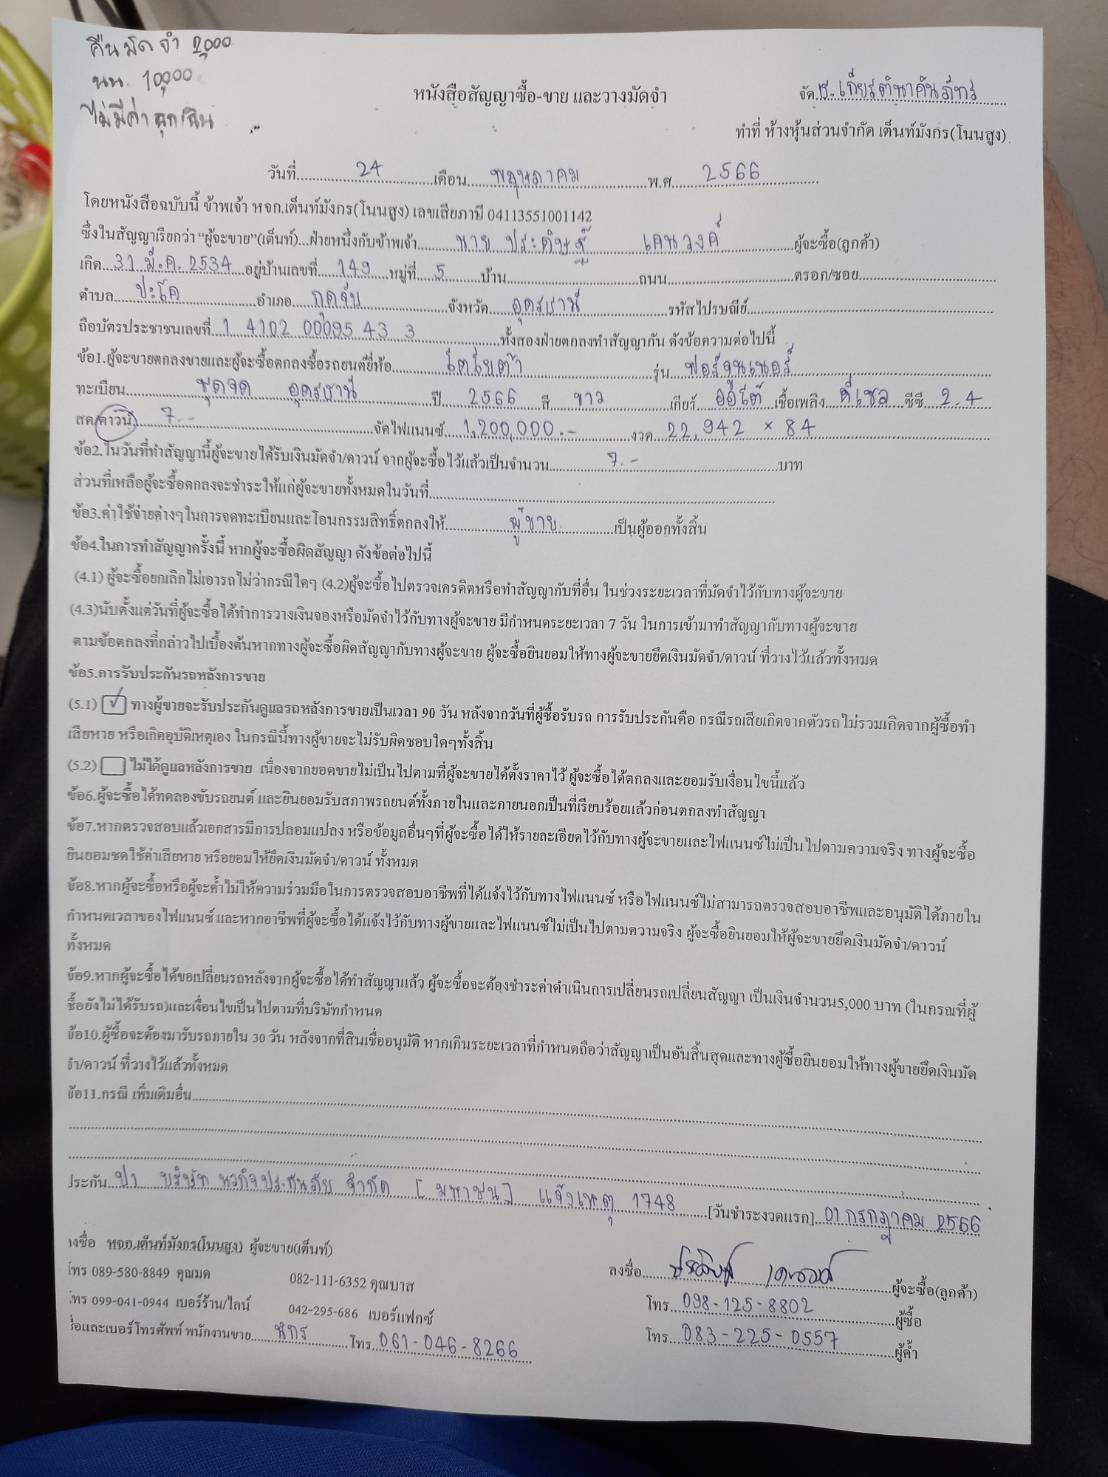 คืนมัดจำ 2,000
นน. 10,000
ไม่มีค่าฉุกเฉิน
หนังสือสัญญาซื้อ-ขาย และวางมัดจำ
จัด ธ.เกียรตินาคินภัทร
ทำที่ ห้างหุ้นส่วนจำกัด เต็นท์มังกร(โนนสูง)
วันที่ 24 เดือน พฤษภาคม พ.ศ. 2566
โดยหนังสือฉบับนี้ ข้าพเจ้า หจก.เต็นท์มังกร(โนนสูง) เลขเสียภาษี 04113551001142
ซึ่งในสัญญาเรียกว่า “ผู้จะขาย”(เต็นท์)...ฝ่ายหนึ่งกับข้าพเจ้า นาย ประดิษฐ์ เคนวงค์ ผู้จะซื้อ(ลูกค้า)
เกิด 31 มี.ค. 2534 อยู่บ้านเลขที่ 149 หมู่ที่ 5 บ้าน ถนน ตรอก/ซอย
ตำบล ปะโค อำเภอ กุดจับ จังหวัด อุดรธานี รหัสไปรษณีย์
ถือบัตรประชาชนเลขที่ 1 4102 00095 43 3 ทั้งสองฝ่ายตกลงทำสัญญากัน ดังข้อความต่อไปนี้
ข้อ1.ผู้จะขายตกลงขายและผู้จะซื้อตกลงซื้อรถยนต์ยี่ห้อ โตโยต้า รุ่น ฟอร์จูนเนอร์
ทะเบียน ชุดจด อุดรธานี ปี 2566 สี ขาว เกียร์ ออโต้ เชื้อเพลิง ดีเซล ซีซี 2.4
สด/ดาวน์ 7.- จัดไฟแนนซ์ 1,200,000.- งวด 22,942 × 84
ข้อ2.ในวันที่ทำสัญญานี้ผู้จะขายได้รับเงินมัดจำ/ดาวน์ จากผู้จะซื้อไว้แล้วเป็นจำนวน 7.- บาท
ส่วนที่เหลือผู้จะซื้อตกลงจะชำระให้แก่ผู้จะขายทั้งหมดในวันที่
ข้อ3.ค่าใช้จ่ายต่างๆในการจดทะเบียนและโอนกรรมสิทธิ์ตกลงให้ ผู้ขาย เป็นผู้ออกทั้งสิ้น
ข้อ4.ในการทำสัญญาครั้งนี้ หากผู้จะซื้อผิดสัญญา ดังข้อต่อไปนี้
(4.1) ผู้จะซื้อยกเลิกไม่เอารถไม่ว่ากรณีใดๆ (4.2)ผู้จะซื้อไปตรวจเครดิตหรือทำสัญญากับที่อื่น ในช่วงระยะเวลาที่มัดจำไว้กับทางผู้จะขาย
(4.3)นับตั้งแต่วันที่ผู้จะซื้อได้ทำการวางเงินจองหรือมัดจำไว้กับทางผู้จะขาย มีกำหนดระยะเวลา 7 วัน ในการเข้ามาทำสัญญากับทางผู้จะขาย
ตามข้อตกลงที่กล่าวไปเบื้องต้นหากทางผู้จะซื้อผิดสัญญากับทางผู้จะขาย ผู้จะซื้อยินยอมให้ทางผู้จะขายยึดเงินมัดจำ/ดาวน์ ที่วางไว้แล้วทั้งหมด
ข้อ5.การรับประกันรถหลังการขาย
(5.1) ✓ ทางผู้ขายจะรับประกันดูแลรถหลังการขายเป็นเวลา 90 วัน หลังจากวันที่ผู้ซื้อรับรถ การรับประกันคือ กรณีรถเสียเกิดจากตัวรถ ไม่รวมเกิดจากผู้ซื้อทำ
เสียหาย หรือเกิดอุบัติเหตุเอง ในกรณีนี้ทางผู้ขายจะไม่รับผิดชอบใดๆทั้งสิ้น
(5.2) ไม่ได้ดูแลหลังการขาย เนื่องจากยอดขายไม่เป็นไปตามที่ผู้จะขายได้ตั้งราคาไว้ ผู้จะซื้อได้ตกลงและยอมรับเงื่อนไขนี้แล้ว
ข้อ6.ผู้จะซื้อได้ทดลองขับรถยนต์ และยินยอมรับสภาพรถยนต์ทั้งภายในและภายนอกเป็นที่เรียบร้อยแล้วก่อนตกลงทำสัญญา
ข้อ7.หากตรวจสอบแล้วเอกสารมีการปลอมแปลง หรือข้อมูลอื่นๆที่ผู้จะซื้อได้ให้รายละเอียดไว้กับทางผู้จะขายและไฟแนนซ์ไม่เป็นไปตามความจริง ทางผู้จะซื้อ
ยินยอมชดใช้ค่าเสียหาย หรือยอมให้ยึดเงินมัดจำ/ดาวน์ ทั้งหมด
ข้อ8.หากผู้จะซื้อหรือผู้จะค้ำไม่ให้ความร่วมมือในการตรวจสอบอาชีพที่ได้แจ้งไว้กับทางไฟแนนซ์ หรือไฟแนนซ์ไม่สามารถตรวจสอบอาชีพและอนุมัติได้ภายใน
กำหนดเวลาของไฟแนนซ์ และหากอาชีพที่ผู้จะซื้อได้แจ้งไว้กับทางผู้ขายและไฟแนนซ์ไม่เป็นไปตามความจริง ผู้จะซื้อยินยอมให้ผู้จะขายยึดเงินมัดจำ/ดาวน์
ทั้งหมด
ข้อ9.หากผู้จะซื้อได้ขอเปลี่ยนรถหลังจากผู้จะซื้อได้ทำสัญญาแล้ว ผู้จะซื้อจะต้องชำระค่าดำเนินการเปลี่ยนรถเปลี่ยนสัญญา เป็นเงินจำนวน5,000 บาท (ในกรณีที่ผู้
ซื้อยังไม่ได้รับรถ)และเงื่อนไขเป็นไปตามที่บริษัทกำหนด
ข้อ10.ผู้ซื้อจะต้องมารับรถภายใน 30 วัน หลังจากที่สินเชื่ออนุมัติ หากเกินระยะเวลาที่กำหนดถือว่าสัญญาเป็นอันสิ้นสุดและทางผู้ซื้อยินยอมให้ทางผู้ขายยึดเงินมัด
จำ/ดาวน์ ที่วางไว้แล้วทั้งหมด
ข้อ11.กรณี เพิ่มเติมอื่น
ประกัน ป1 บริษัท นวกิจประกันภัย จำกัด [มหาชน] แจ้งเหตุ 1748 [วันชำระงวดแรก] 01 กรกฎาคม 2566
งชื่อ หจก.เต็นท์มังกร(โนนสูง) ผู้จะขาย(เต็นท์)
ลงชื่อ ประดิษฐ์ เคนวงค์ ผู้จะซื้อ(ลูกค้า)
โทร 089-580-8849 คุณมด 082-111-6352 คุณบาส
โทร 098-125-8802 ผู้ซื้อ
โทร 099-041-0944 เบอร์ร้าน/ไลน์ 042-295-686 เบอร์แฟกซ์
โทร 083-225-0557 ผู้ค้ำ
ชื่อและเบอร์โทรศัพท์ พนักงานขาย โทร 061-046-8266